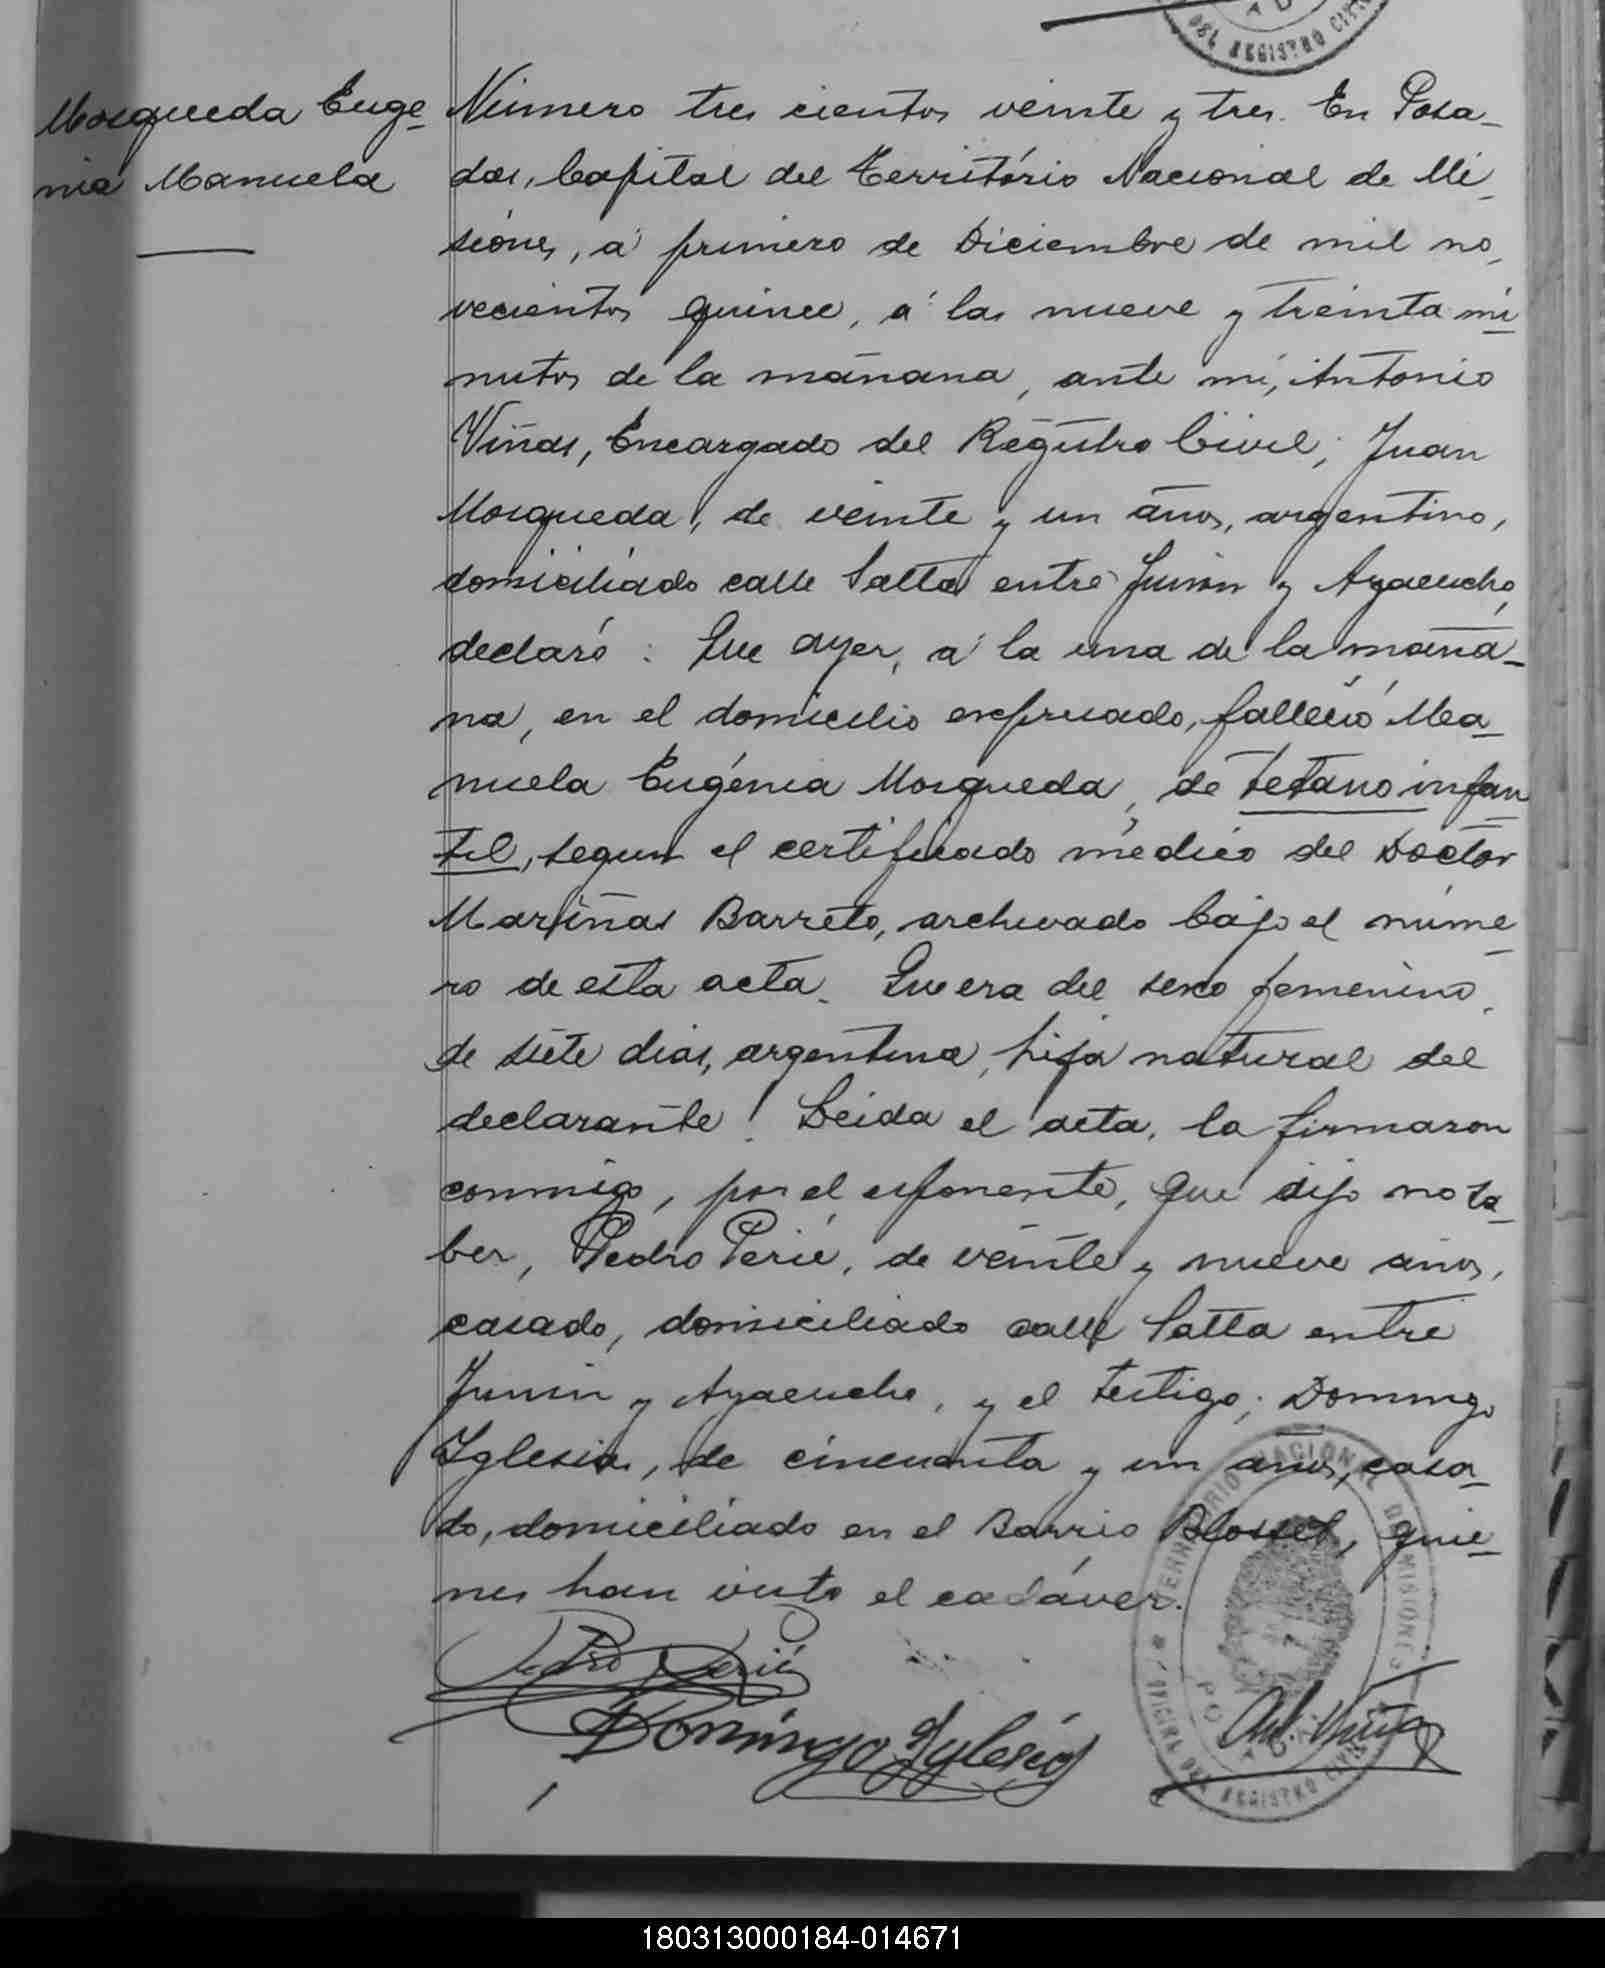 DEL REGISTRO CIVIL
Mosqueda Euge-
nia Manuela
Número tres cientos veinte y tres. En Posa-
das, Capital del Território Nacional de Mi-
siones, á primero de Diciembre de mil no-
vecientos quince, á las nueve y treinta mi-
nutos de la mañana, ante mí, Antonio
Viñas, Encargado del Registro Civil; Juan
Mosqueda, de veinte y un años, argentino,
domiciliado calle Salta entre Junin y Ayacucho,
declaró: Que ayer, á la una de la maña-
na, en el domicilio expresado, falleció Ma-
nuela Eugénia Mosqueda, de tetano infan-
til, segun el certificado médico del Doctor
Mariñas Barreto, archivado bajo el núme-
ro de esta acta. Que era del sexo femenino,
de siete dias, argentina, hija natural del
declarante. Leida el acta, la firmaron
conmigo, por el exponente, que dijo no sa-
ber, Pedro Perié, de veinte y nueve años,
casado, domiciliado calle Salta entre
Junin y Ayacucho, y el testigo; Domingo
Iglesias, de cincuenta y un años, casa-
do, domiciliado en el Barrio Blosset, quie-
nes han visto el cadáver.
Pedro Perié
Domingo Iglesias
Ant. Viñas
TERRITORIO NACIONAL DE MISIONES
OFICINA DEL REGISTRO CIVIL
180313000184-014671